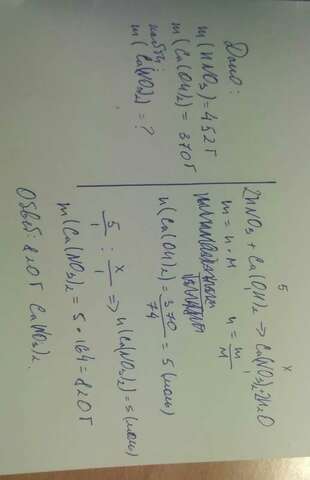 Дано:
m(HNO3) = 452 г
m(Ca(OH)2) = 370 г
найти:
m(Ca(NO3)2) = ?
5 x
2HNO3 + Ca(OH)2 => Ca(NO3)2 + 2H2O
m = n · M n = m/M
n(Ca(OH)2) = 370/74 = 5 (моль)
5/1 : x/1 => n(Ca(NO3)2) = 5 (моль)
m(Ca(NO3)2 = 5 · 164 = 820 г
Ответ: 820 г Ca(NO3)2.